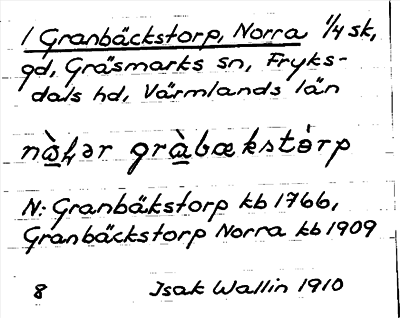 1 Granbäckstorp, Norra 1/4 sk,
gd, Gräsmarks sn, Fryks-
dals hd, Värmlands län
gràbækstòrp
N: Granbäkstorp kb 1766,
Granbäckstorp Norra kb 1909
8 Isak Wallin 1910